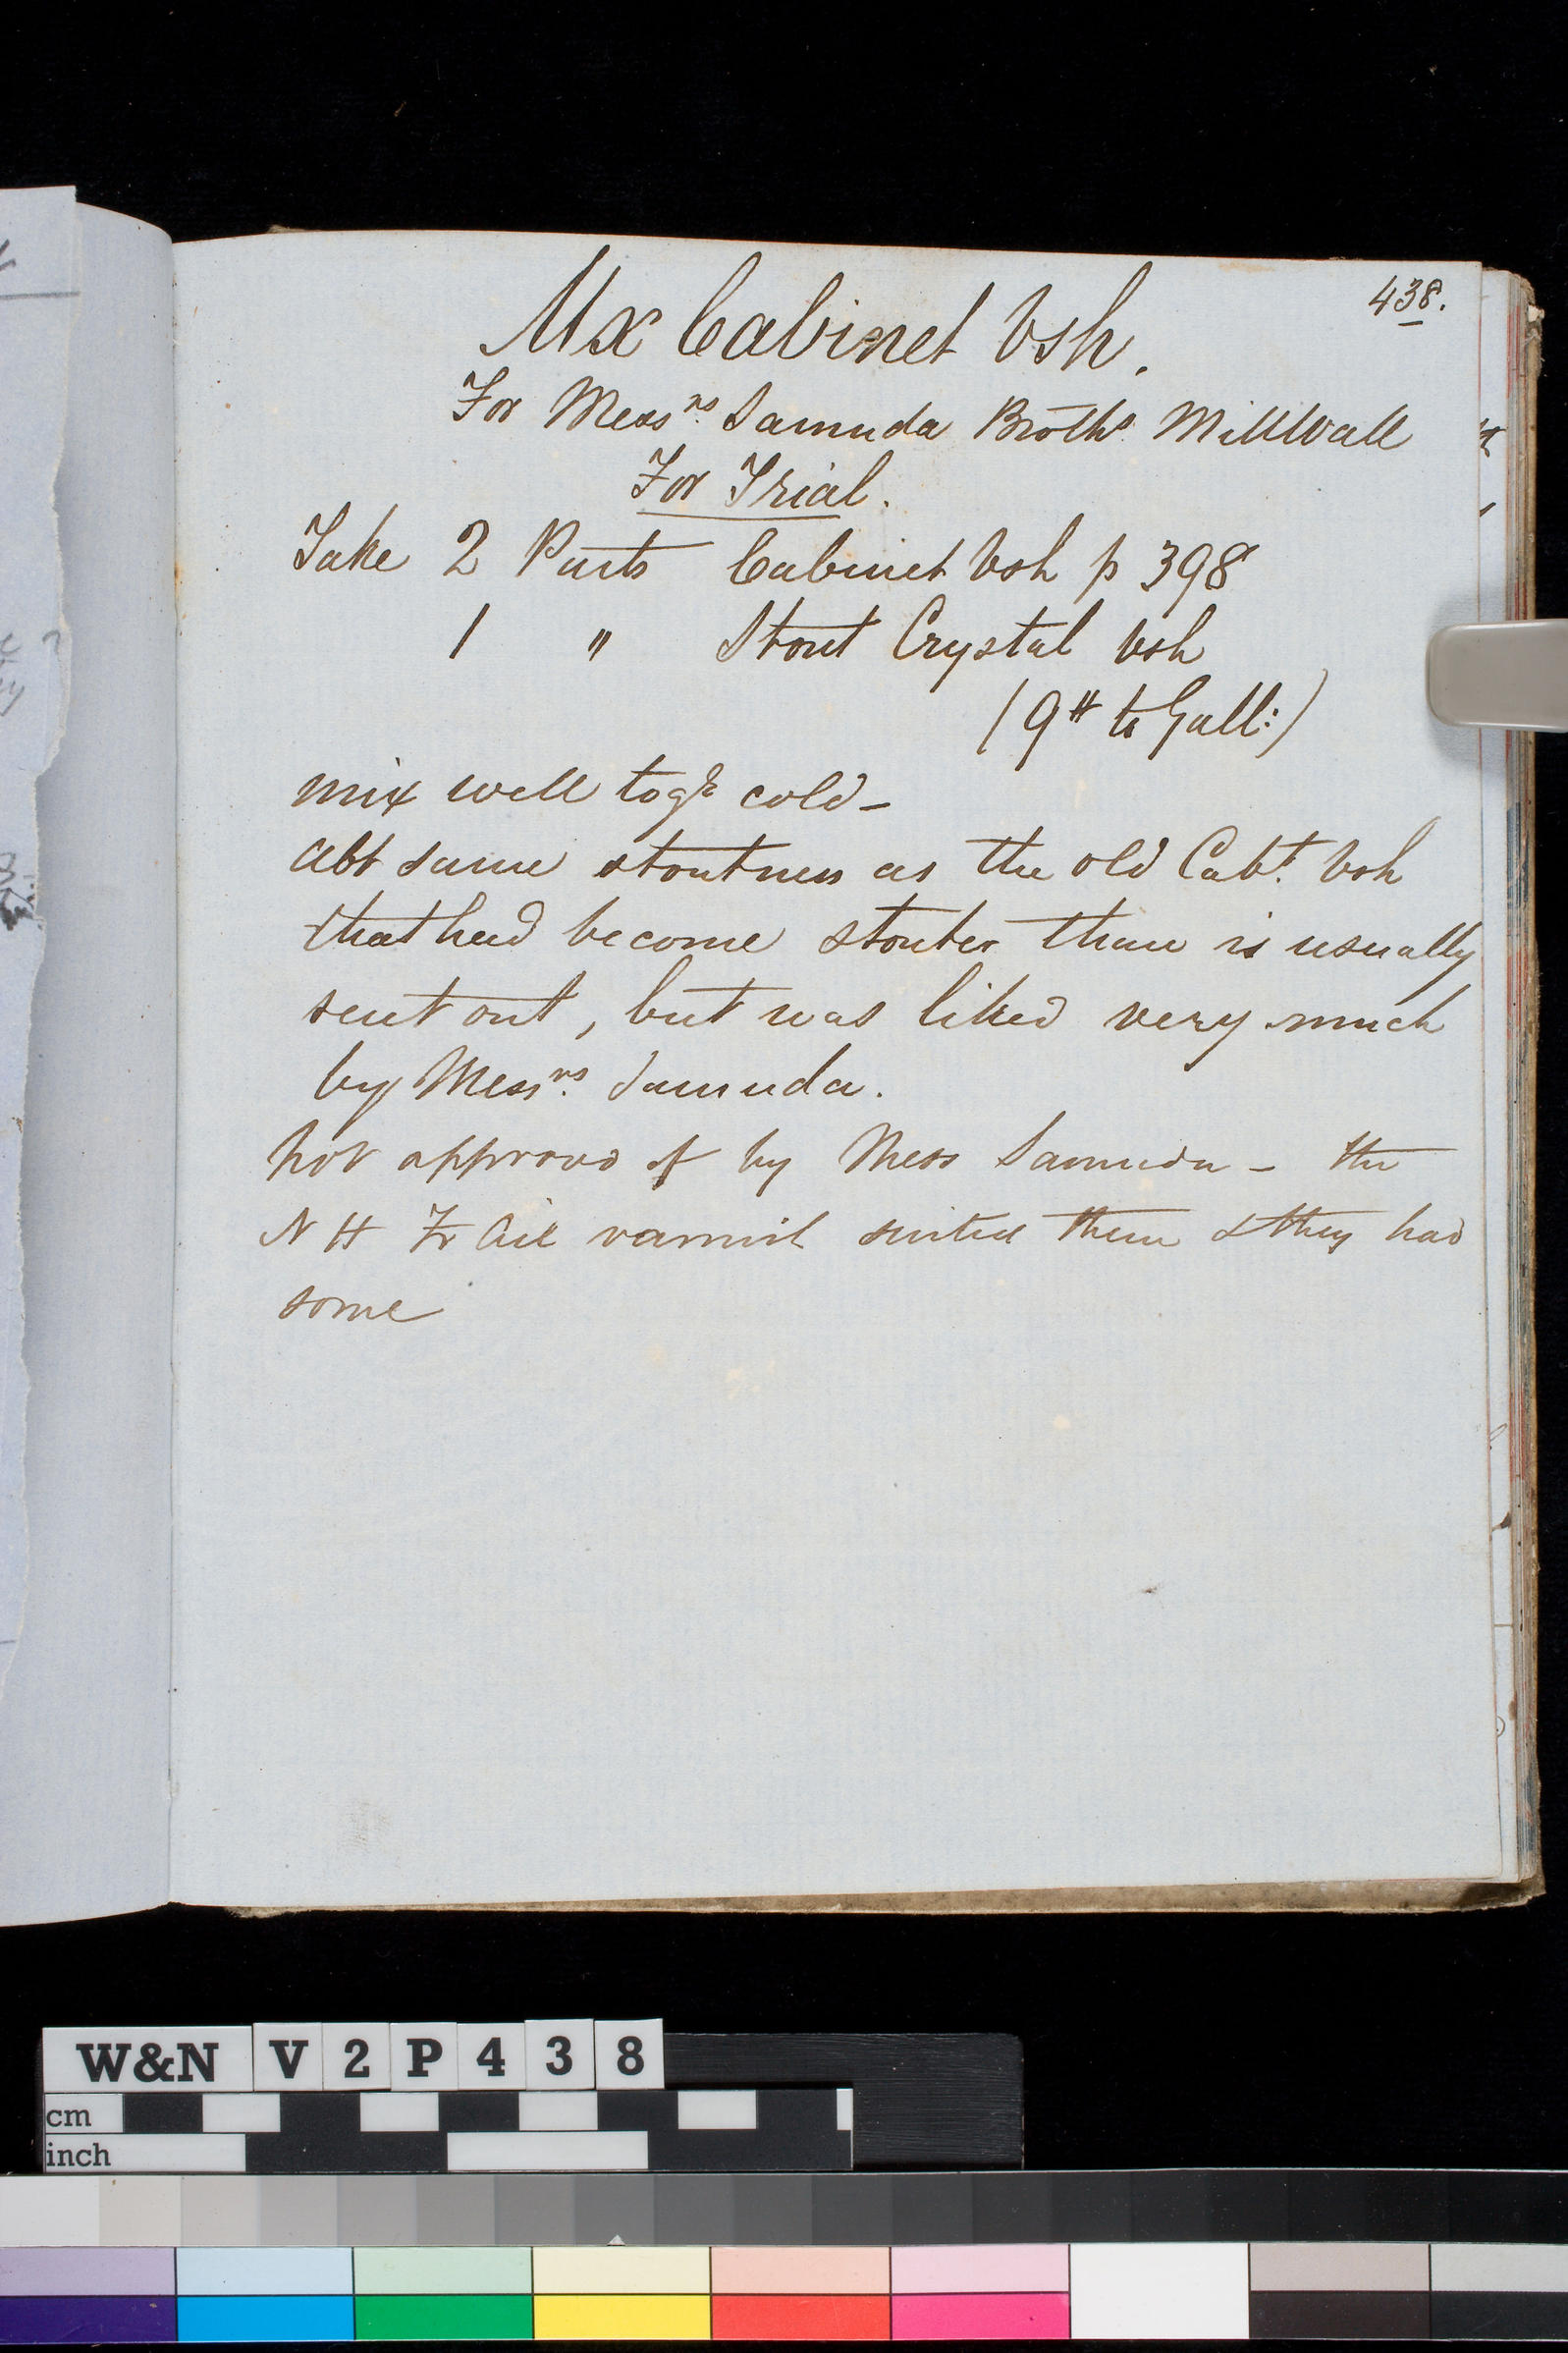 438.
Mx Cabinet Vsh.
For Messrs. Samuda Broths. Millwall
For Trial.
Take 2 Parts Cabinet Vsh p 398
1 " Stout Crystal Vsh
(9 # to Gall:)
mix well togr cold -
abt same stoutness as the old Cabt. Vsh
that had become stouter than is usually
sent out, but was liked very much
by Messrs. Samuda.
not approvd of by Mess Samuda - the
N H Fr Oil varnish suited them & they had
some
W&N V2P438
cm
inch